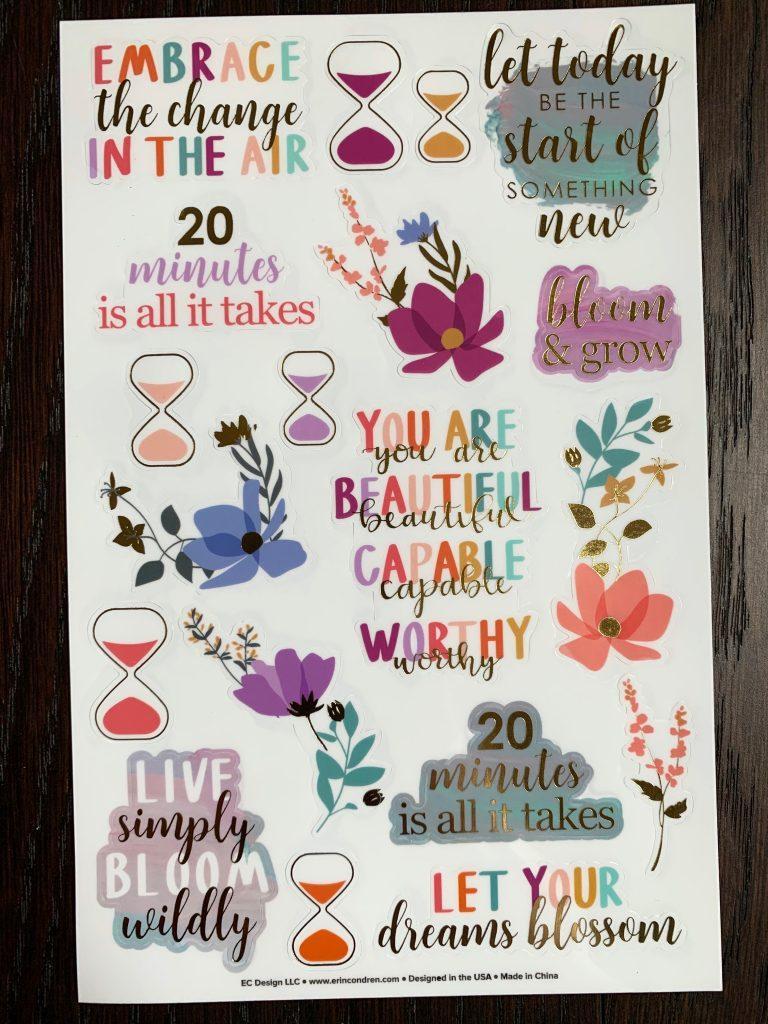 EMBRACE
the change
IN THE AIR
let today
BE THE
start of
SOMETHING
new
20
minutes
is all it takes
bloom
& grow
YOU ARE
you are
BEAUTIFUL
beautiful
CAPABLE
capable
WORTHY
worthy
20
minutes
is all it takes
LIVE
simply
BLOOM
wildly
LET YOUR
dreams blossom
EC Design LLC • www.erincondren.com • Designed in the USA • Made in China